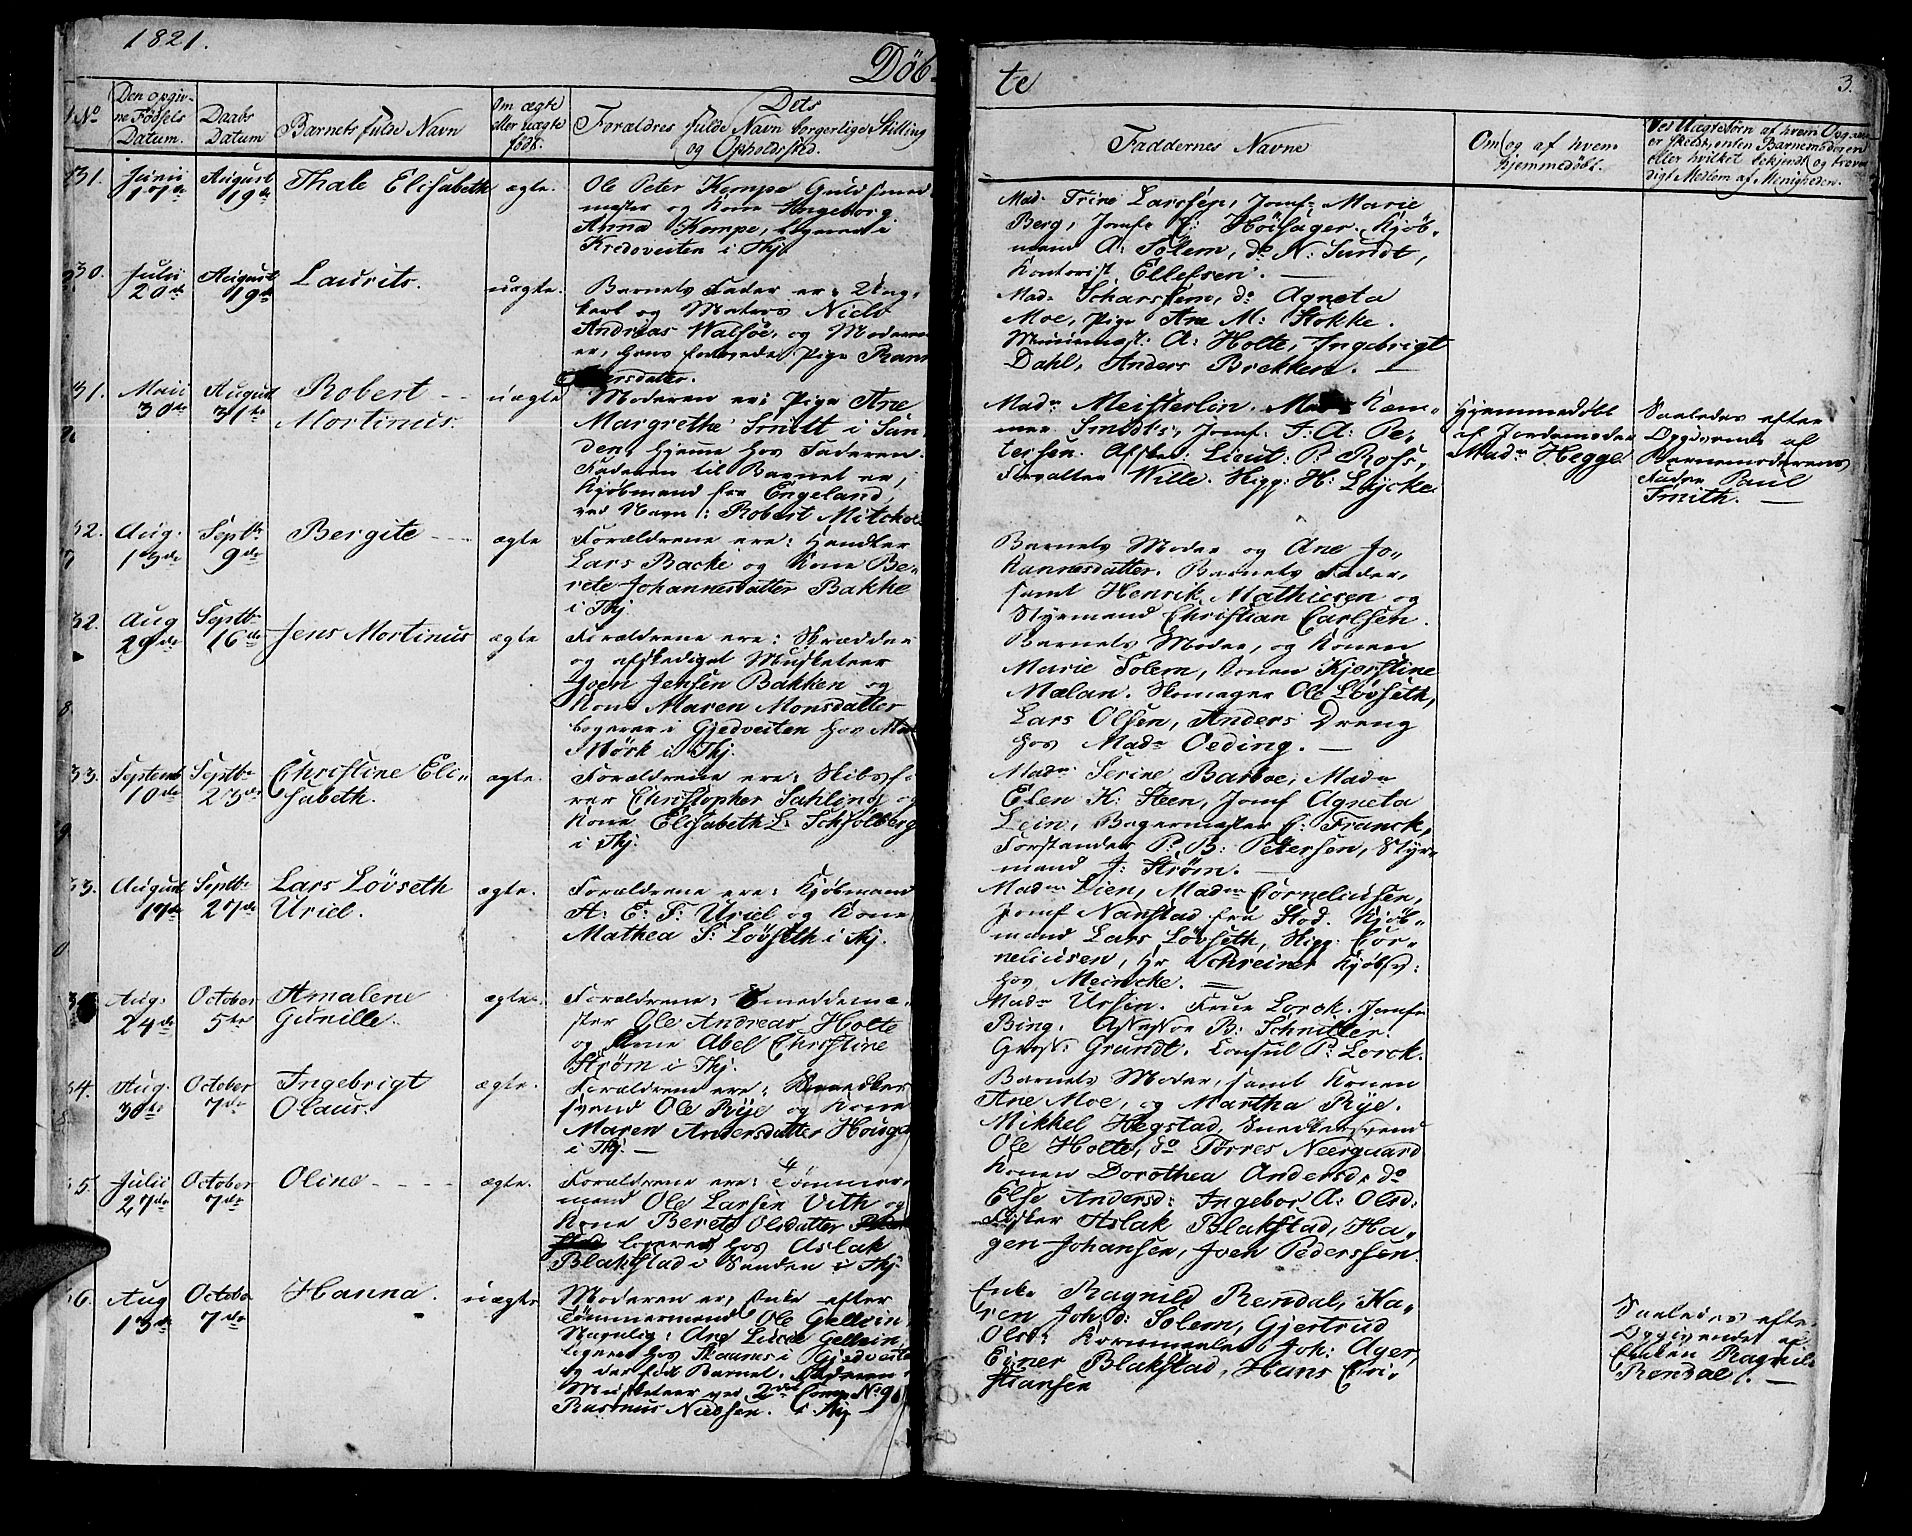 1821.
Döb-
te
3.
No
Den opgiv-
ne Fødsels
Datum.
Daabs
Datum
Barnets fulde Navn
Om ægte
eller uægte
født.
Dets
Forældres fulde Navn borgerlige Stilling
og Opholdssted.
Faddernes Navne
Om og af hvem
hjemmedøbt.
31.
Junii
Augusti
19de
Thale Elisabeth
ægte.
Ole Peter Kempe Guldsmed
mester og Kone Ingeborg
Anna Kempe, logerer i
Kredoveiten i Thj.
Mad. Trine Larssen, Jomf. Marie
Berg, Jomfr Höisager. Kjöb-
mand A: Solem, do N: Sundt,
Kontorist Ellefsen.
30.
Julii
20de
August
19de
Laurits.
uægte.
Barnets Fader er: Ung-
karl og Matros Niels
Andreas Walsøe, og Moderen
er, hans forlovede: Pige
Mad. Scharslem, do Agneta
Moe, Pige Ane M: Stokke.
A: Holte, Ingebrigt
Dahl, Anders Brekken.
31.
Maii
30te
August
31te
Robert
Mortinus.
uægte
Moderen er: Pige Ane
Margrethe Smitt i San-
den, hjeme hos Faderen.
Faderen til Barnet er,
Kjöbmand fra Engeland,
ved Navn: Robert Mitchel
Madm Meisterlin.
Smidts, Jomf. J. A: Pe-
tersen. Afsked: Lieut: P. Ross,
Forvalter Wille. Skipp: H: Lycke.
Hjemmedøbt
af Jordemoder
Madm Hegge.
Saaledes efter
Opgivende af
Barnemoderens
Fader Paul
Smith.
32.
Aug.
13de
Septbr
9de
Bergite
ægte
Forældrene ere: Handler
Lars Backe og Kone Be-
rete Johannesdatter Bakke
i Thj.
Barnets Moder og Ane Jo-
hannesdatter. Barnets Fader,
samt Henrik Mathiesen og
Styrmand Christian Carlsen.
32.
Aug
29de
Septbr
16de
Jens Mortinus
ægte
Forældrene ere: Skrædder
og afskediget Musketeer
Joen Jensen Bakken og
Kone Maren Monsdatter
logerer i Gjedveiten hos
Mörk i Thj.
Barnets Moder, og Konen
Marie Solem, Konen Kjerstine
Mælan. Skomager Ole Lövseth,
Lars Olsen, Anders Dreng
hos Madm Oeding.
33.
Septemb
10de
Septbr
23de
Christine Eli-
sabeth.
ægte.
Forældrene ere: Skibsfö-
rer Christopher Sahling og
Kone Elisabeth L: Schjølberg
i Thj.
Madm Serine Barboe, Madm
Elen K: Steen, Jomf Agneta
Lein, Bagermester C: Franck,
Forstander P. B: Petersen, Styr-
mand J: Strøm.
33.
August
Septbr
27de
Lars Lövseth
Uriel.
ægte.
Forældrene ere: Kjöbmand
A: E: F: Uriel og Kone
Mathea S: Lövseth i Thj.
Madm Lien, Madm Corneliussen,
Jomf Nanstad fra Stod. Kjöb-
mand Lars Lövseth, Skipp: Cor-
neliussen, Hr Schreiner Kjöbsv:
hos Meincke.
Aug.
24de
October
5te
Amalene
Gunille.
ægte.
Forældrene: Smeddeme-
ster Ole Andreas Holte
og Kone Abel Christine
Strøm i Thj.
Madm Ursin. Frue Lorck. Jomfr
Bing. Assessor B: Schnitler.
Gross: Grundt. Consul P: Lorck.
34.
Aug.
30te
October
7de
Ingebrigt
Olaus.
ægte.
Forældrene ere: Snedker
svend Ole Rye og Kone
Maren Andersdatter Houge
i Thj.
Barnets Moder, samt Konen
Ane Moe, og Martha Rye.
Mikkel Hegstad, Snedkersvend
Ole Holte, do Torres Neerguard
35.
Julii
27de
October
7de
Oline
ægte.
Forældrene ere: Tömmer-
mand Ole Larsen Vith og
Kone Berete Olsdatter
logerer hos Aslak
Blakstad i Sanden i Thj.
Konen Dorothea Andersd, do
Else Andersd: Ingebor A: Olsd:
Fisker Aslak Blakstad, Ha-
gen Johansen, Joen Pederssen.
36.
Aug
13de
October
7de
Hanna.
uægte
Moderen er, Enke efter
Tömmermand Ole Gellein,
Navnlig: Ane Lucie Gellein,
logerer hos Staunes i Gjedveiten
og der fød Barnet. Faderen
Musketeer ved 2det Comp. No 96
Rasmus Nielsen. i Thj
Enke Ragnild Rendal, Ka-
ren Johsd: Solem, Gjertrud
Olsd: Kornmaaler Joh: Ager,
Einer Blakstad, Hans Chri-
stiansen
Saaledes efter
Opgivende af
Enken Ragnild
Rendal.